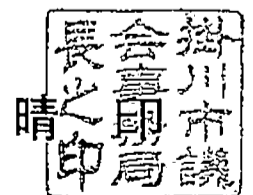 掛川市議
会事務局
長之印
晴